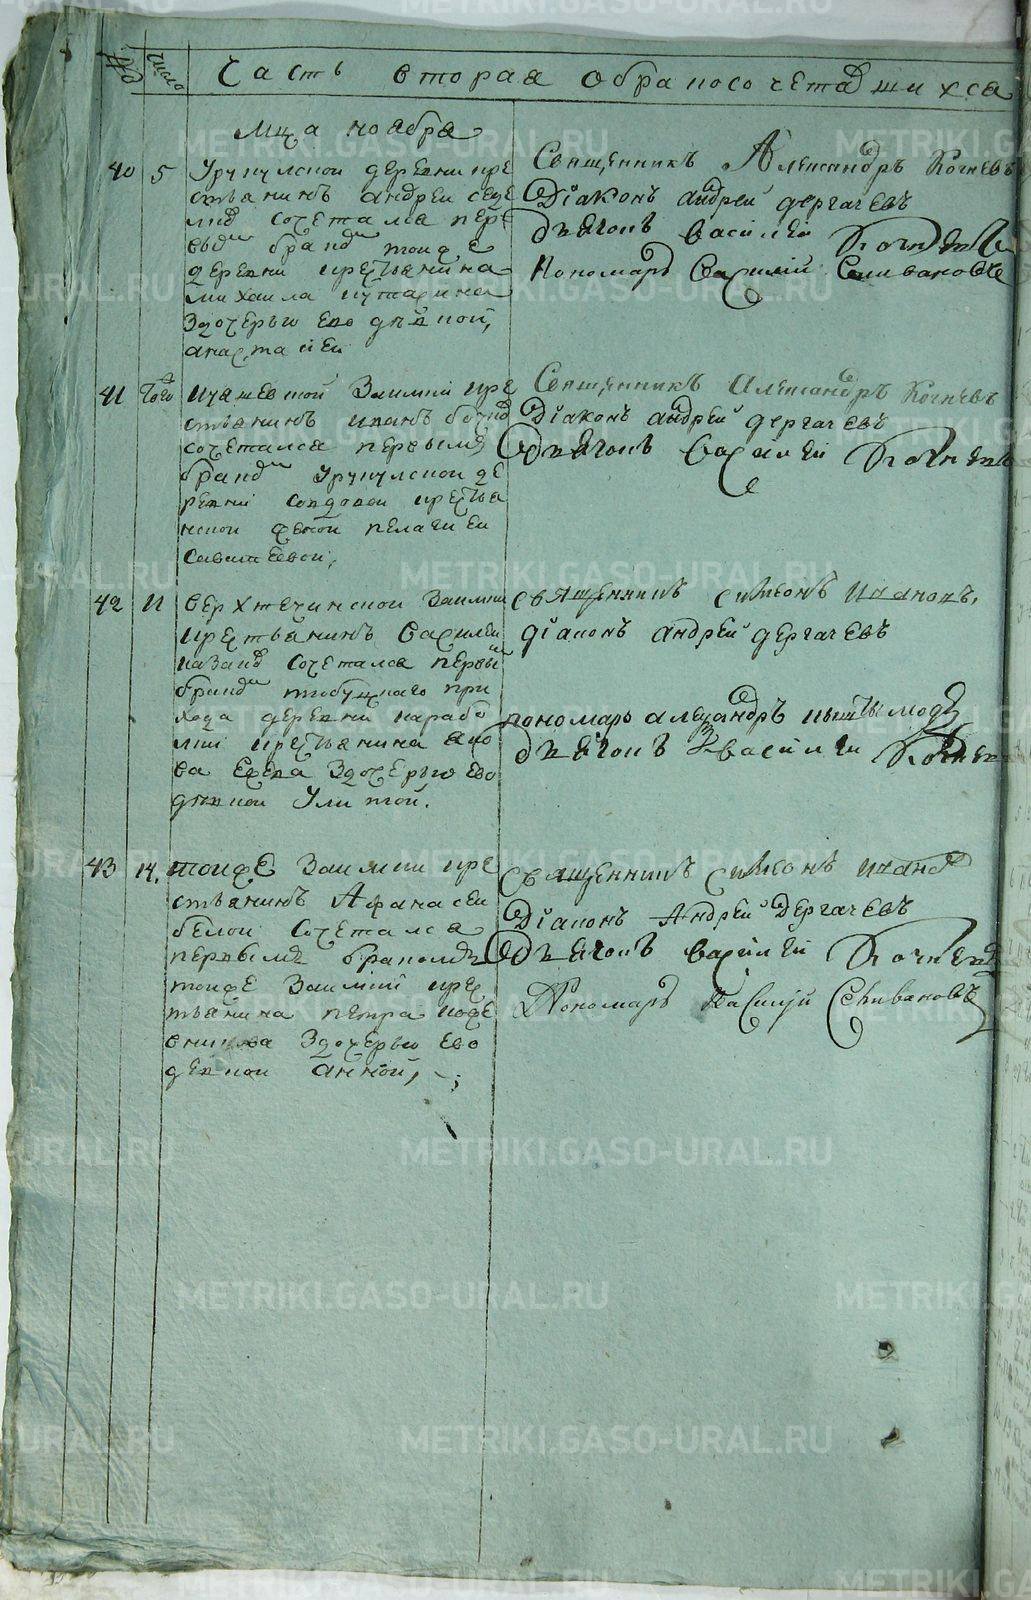 №
число
Часть вторая о бракосочетавшихся
Мца ноября
40
5
крестьянинъ Андреи
сочетался пер
вымъ бракомъ тоиже
деревни крестьянина
михаила
Здочерью ево дѣвкой,
анастасией
Священникъ Александръ Кочневъ
Дiаконъ андрей дергачевъ
дьячокъ василей Кочневъ
Пономарь Василий Селивановъ
41
того
заимки кре
стьянинъ иванъ
сочетался первымъ
бракомъ де
ревни вдовой крестья
нской женой пелагиеи
Савастеевой,
Священникъ Александръ Кочневъ
Дiаконъ андрей дергачевъ
Дьячокъ василей Кочневъ
42
11
верхтечинской заимки
крестьянинъ Василеи
сочетался первым
бракомъ при
хода деревни
крестьянина
Здочерью ево
дѣвкой Улитой.
Священникъ симеонъ Ивановъ,
дiаконъ андрей дергачевъ
пономарь александръ
дьячокъ василеи Кочневъ
43
14.
тоиже Заимки кре
стьянинъ Афанасеи
белои Сочетался
первымъ бракомъ
тоиже Заимки крес
тьянина петра коже
вникова Здочерью ево
девкой анной,
Священникъ симеонъ Иванов
Дiаконъ Андрей Дергачевъ
Дьячокъ василей Кочневъ
Пономарь Василий Селивановъ
METRIKI.GASO-URAL.RU